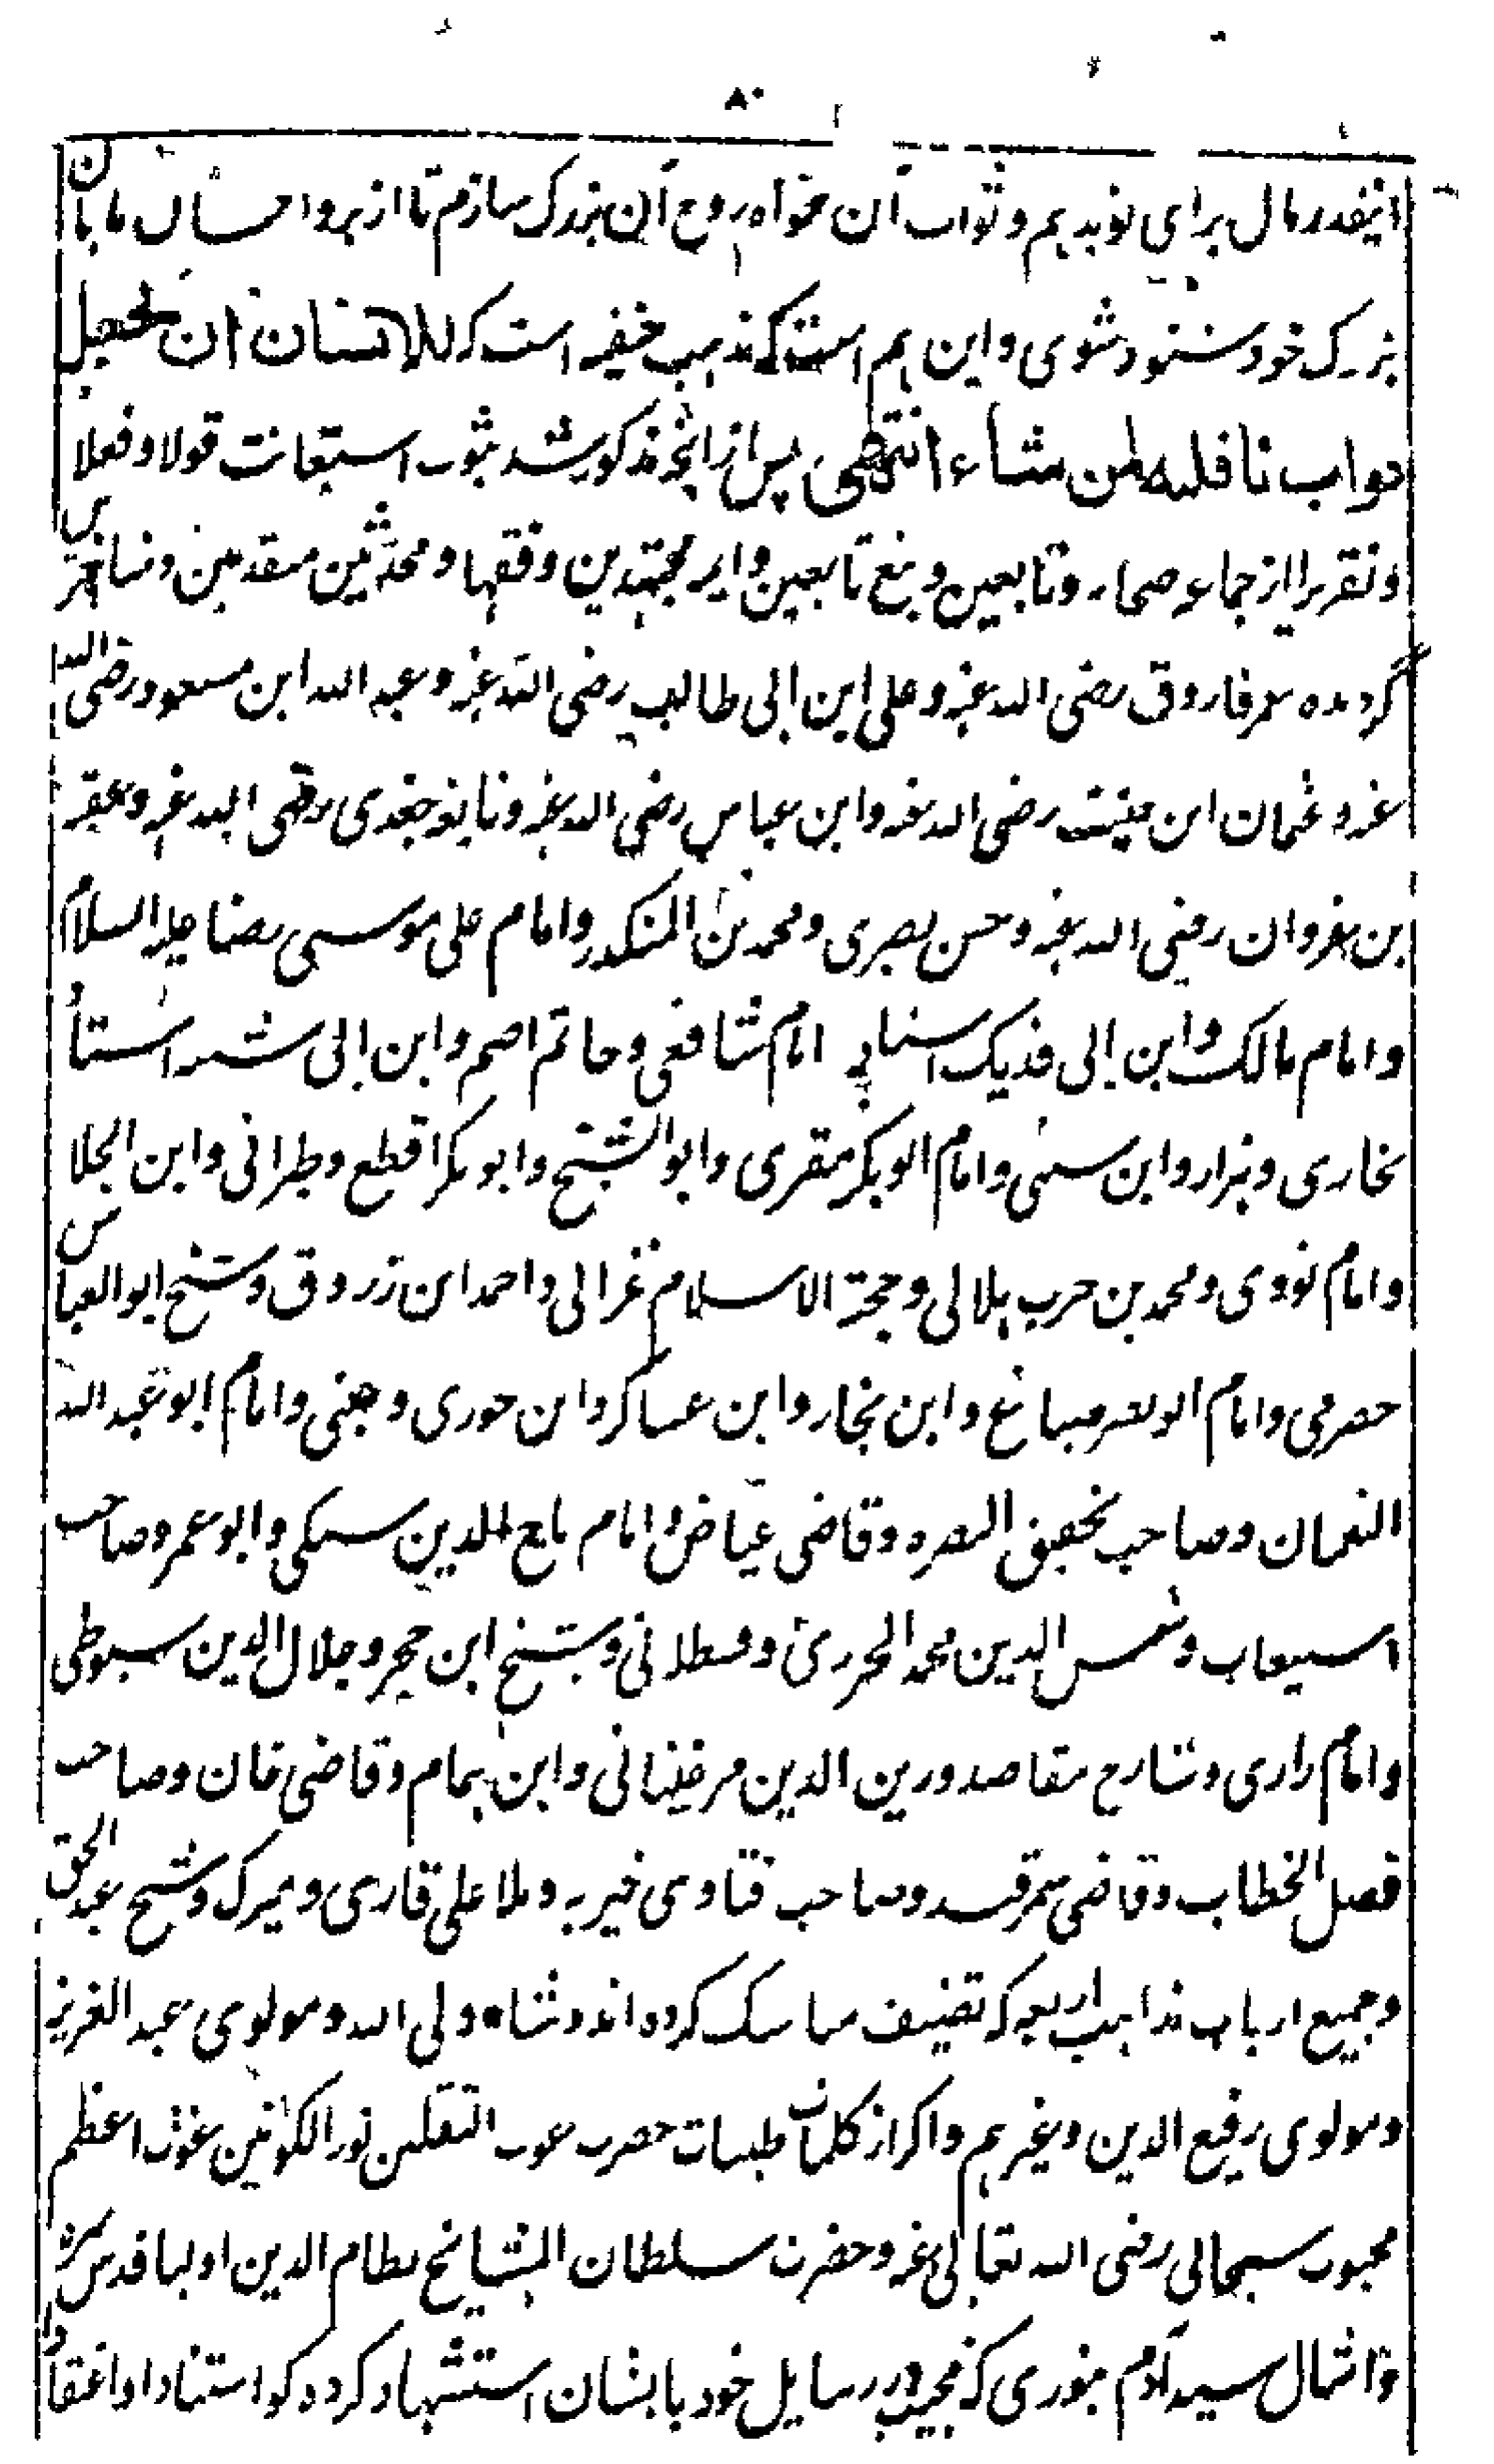 ۸۰
اینقدر مال برای تو بدہیم و ثواب آن خواہ روح آن بزرگ سازم تا از بر و احسان ما بآن
بزرگ خود خشنود شوی و این ہم است کہ مذہب حنفیہ است کہ للانسان ان یجعل
ثواب نافلہ لمن شاء انتہی پس از انچہ مذکور شد ثبوت استعانت قولا و فعلا
و تقریرا از جماعہ صحابہ و تابعین و تبع تابعین و ایمہ مجتہدین و فقہا و محدثین متقدمین و متاخرین
گردیدہ عمر فاروق رضی اللہ عنہ و علی ابن ابی طالب رضی اللہ عنہ و عبد اللہ ابن مسعود رضی اللہ
عنہ و عثمان ابن رضی اللہ عنہ و ابن عباس رضی اللہ عنہ و نابغہ جعدی رضی اللہ عنہ و عتبہ
بن غزوان رضی اللہ عنہ و حسن بصری و محمد بن المنکدر و امام علی موسی رضا علیہ السلام
و امام مالک و ابن ابی فدیک استاد امام شافعی و حاتم اصم و ابن ابی شیبہ استاد
بخاری و بزار و ابن سنی و امام ابوبکر مقری و ابو الشیخ و ابوبکر اقطع و طبرانی و ابن الجلا
و امام نووی و محمد بن حرب ہلالی و حجۃ الاسلام غزالی و احمد ابن زروق و شیخ ابو العباس
حضرمی و امام ابو نصر صباغ و ابن نجار و ابن عساکر و ابن جوزی و و امام ابو عبد اللہ
النعمان و صاحب تحقیق النصرہ و قاضی عیاض و امام تاج الدین سبکی و ابو عمر و صاحب
استیعاب و شمس الدین محمد الجزری و قسطلانی و شیخ ابن حجر و جلال الدین سیوطی
و امام رازی و شارح مقاصد و زین الدین مرغینانی و ابن ہمام و قاضی خان و صاحب
فصل الخطاب و قاضی سمرقند و صاحب فتاوی خیریہ و ملا علی قاری و میرک و شیخ عبد الحق
و جمیع ارباب مذاہب اربعہ کہ تصنیف مناسک کردہ اند و شاہ ولی اللہ و مولوی عبد العزیز
و مولوی رفیع الدین و غیرہم و اگر از کلمات طیبات حضرت غوث الثقلین نور الکونین غوث اعظم
محبوب سبحانی رضی اللہ تعالی عنہ و حضرت سلطان المشایخ نظام الدین اولیا قدس سرہ
و امثال سید آدم بنوری کہ مجیب در رسایل خود بایشان استشہاد کردہ کو استنادا و اعتقادا